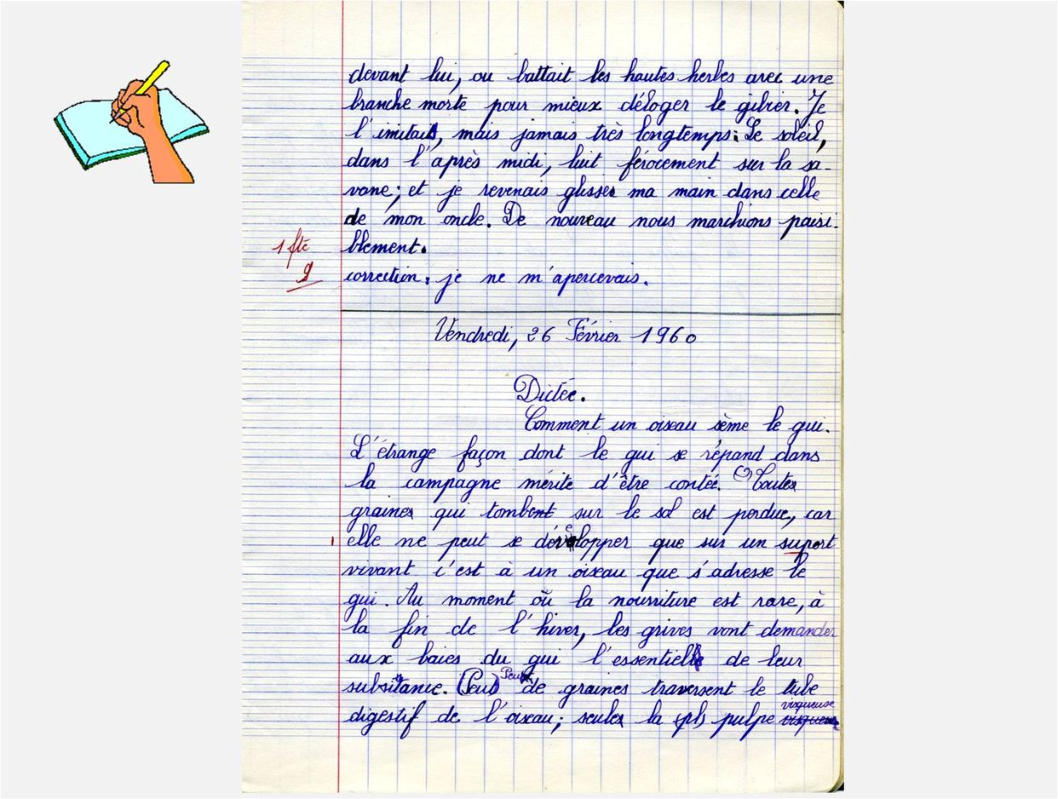 devant lui, ou battait les hautes herbes avec une
branche morte pour mieux déloger le gibier. Je
l'imitais, mais jamais très longtemps: Le soleil,
dans l'après midi, luit férocement sur la sa-
vane; et je revenais glisser ma main dans celle
de mon oncle. De nouveau nous marchions paisi-
blement.
1 fte
9
correction: je ne m'apercevais.
Vendredi, 26 Février 1960
Dictée.
Comment un oiseau sème le gui.
L'étrange façon dont le gui se répand dans
la campagne mérite d'être contée. Toutes
graines qui tombent sur le sol est perdue, car
elle ne peut se développer que sur un suport
vivant c'est à un oiseau que s'adresse le
gui. Au moment où la nourriture est rare, à
la fin de l'hiver, les grives vont demander
aux baies du gui l'essentiel de leur
subsitance. (Peu) Peu de graines traversent le tube
digestif de l'oiseau; seules la (pl) pulpe visqueuse